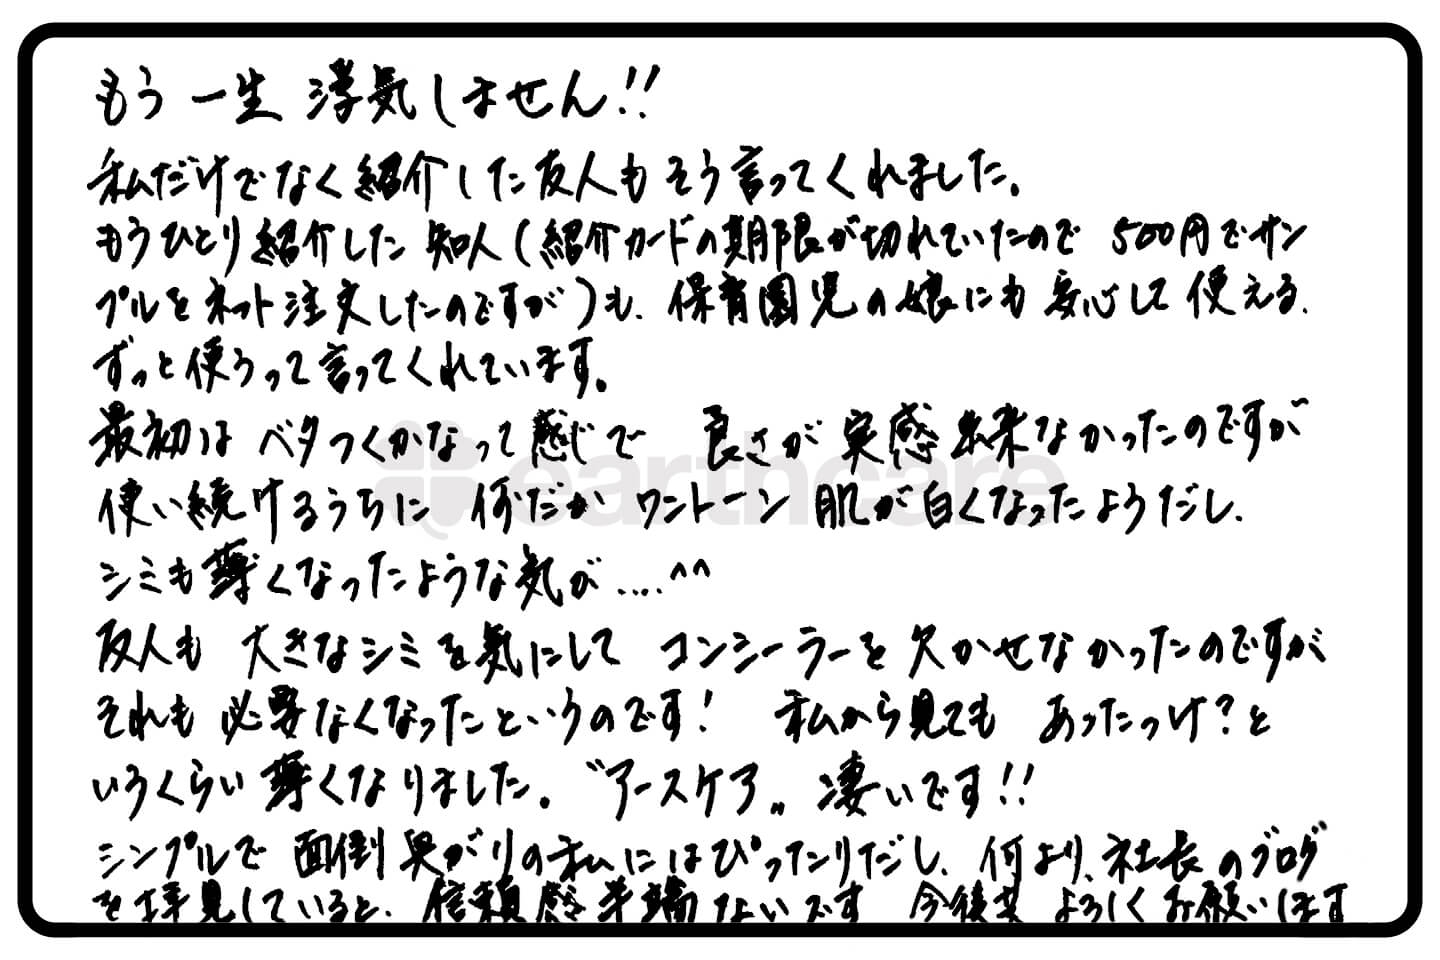 もう一生 浮気しません!!
私だけでなく紹介した友人もそう言ってくれました。
もうひとり紹介した知人(紹介カードの期限が切れていたので 500円でサン
プルをネット注文したのですが)も、保育園児の娘にも安心して使える、
ずっと使うって言ってくれています。
最初は ベタつくかなって感じで 良さが 実感出来なかったのですが
使い続けるうちに 何だか ワントーン 肌が白くなったようだし、
シミも薄くなったような気が....^^
友人も 大きなシミを気にして コンシーラーを欠かせなかったのですが
それも必要なくなったというのです! 私から見ても あったっけ?と
いうくらい薄くなりました。〝アースケア〟凄いです!!
シンプルで 面倒臭がりの私にはぴったりだし、何より、社長のブログ
を拝見していると、信頼感半端ないです 今後共 よろしくお願いします
earthcare